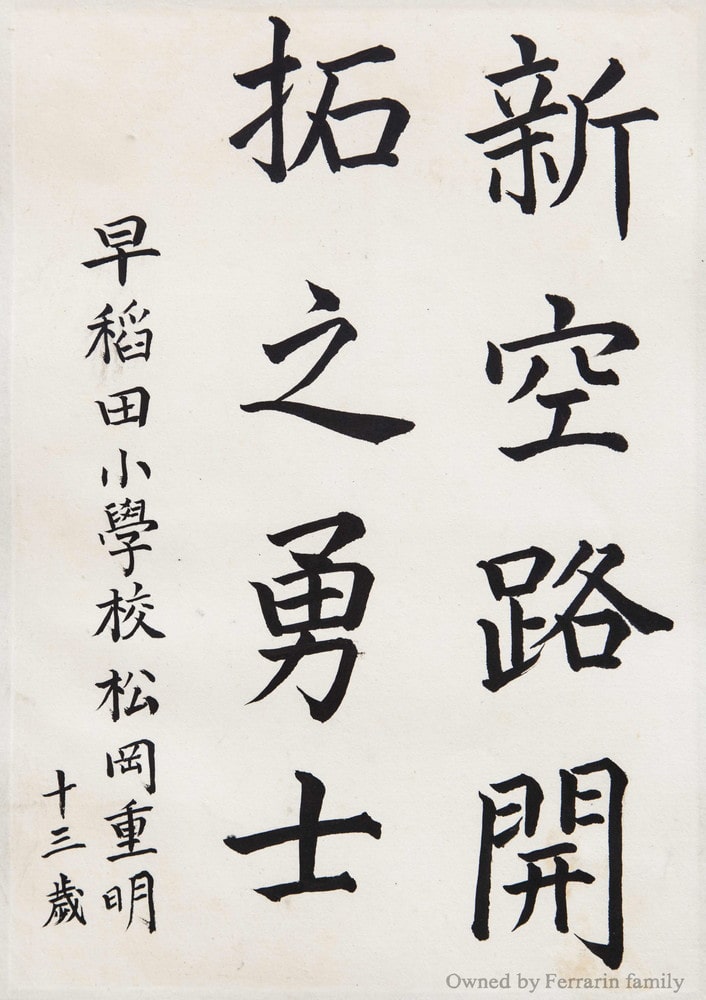 新空路開
拓之勇士
早稻田小學校松岡重明
十三歲
Owned by Ferrarin family